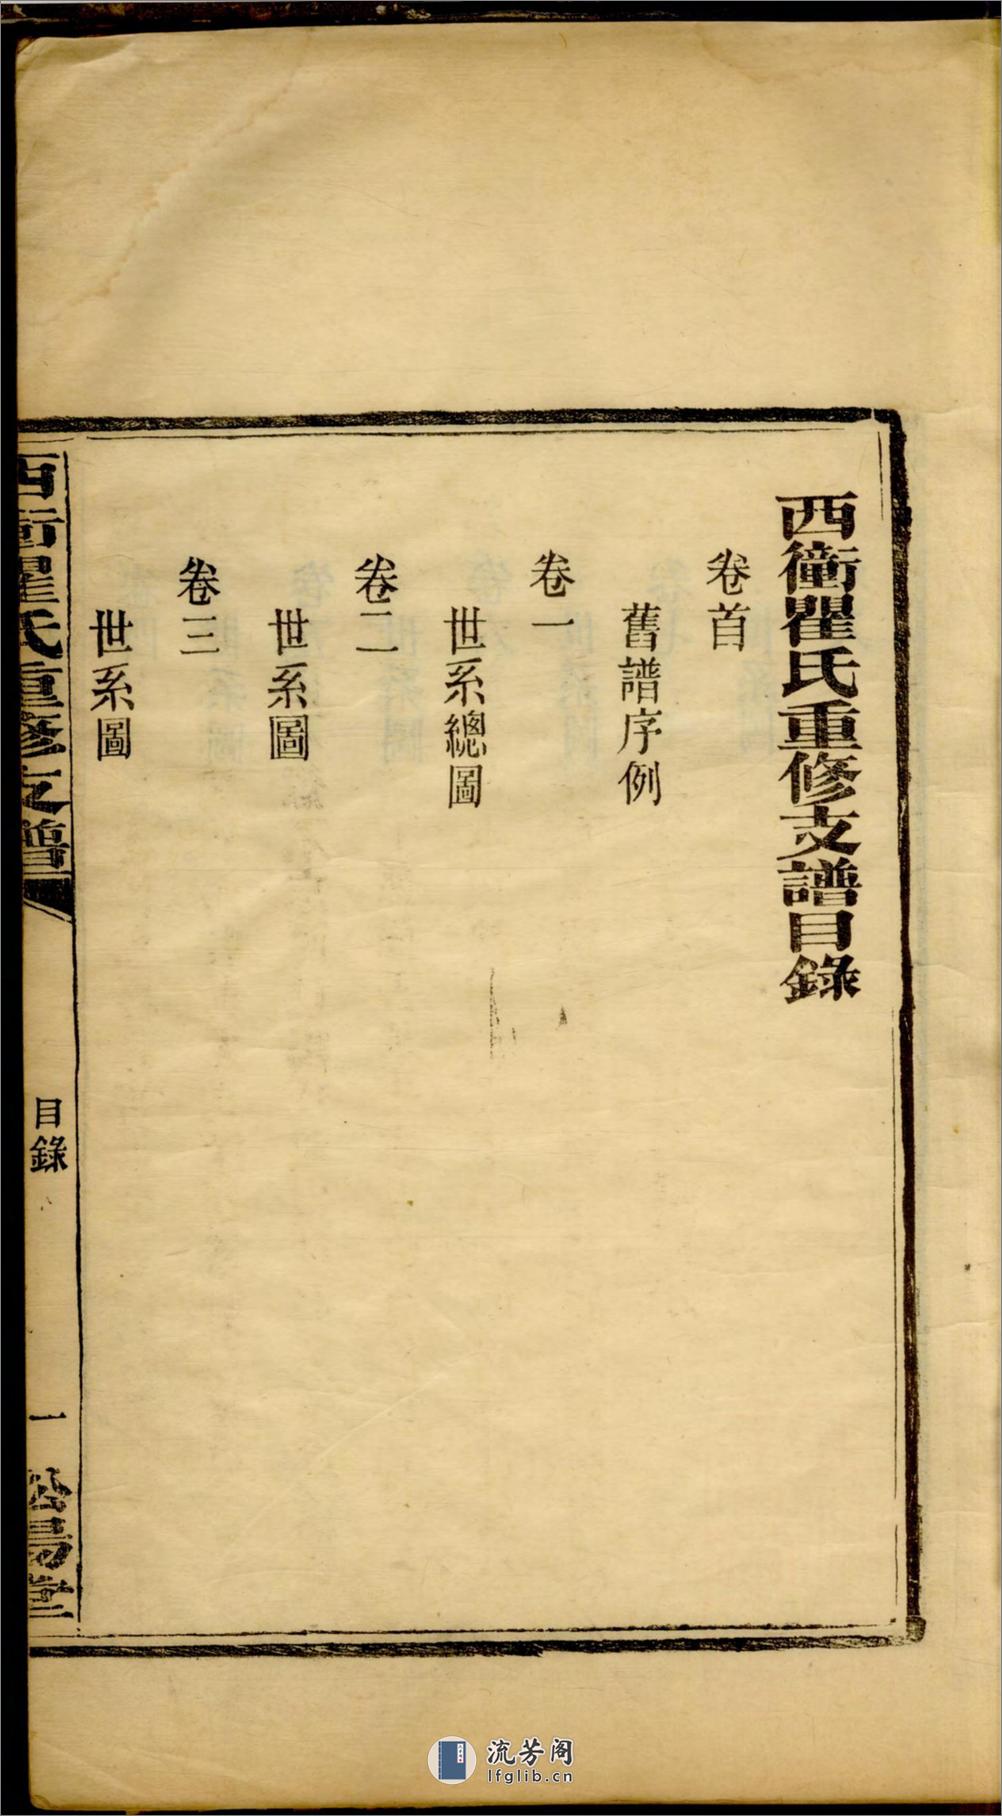 西衝瞿氏重修支譜目錄
卷首
舊譜序例
卷一
世系總圖
卷二
世系圖
卷三
世系圖
西衝瞿氏重修支譜
目錄
一
松陽堂
流芳阁
lfglib.cn